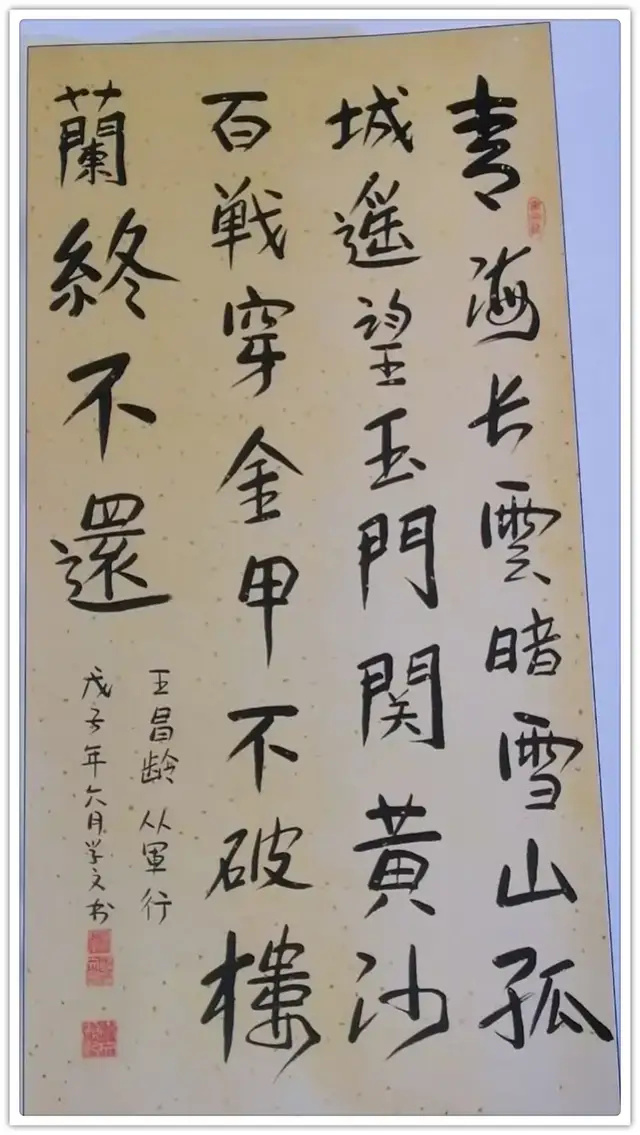 青海长雲暗雪山孤
城遥望玉門関黄沙
百戦穿金甲不破楼
蘭終不還
王昌龄从軍行
戊子年六月学文书